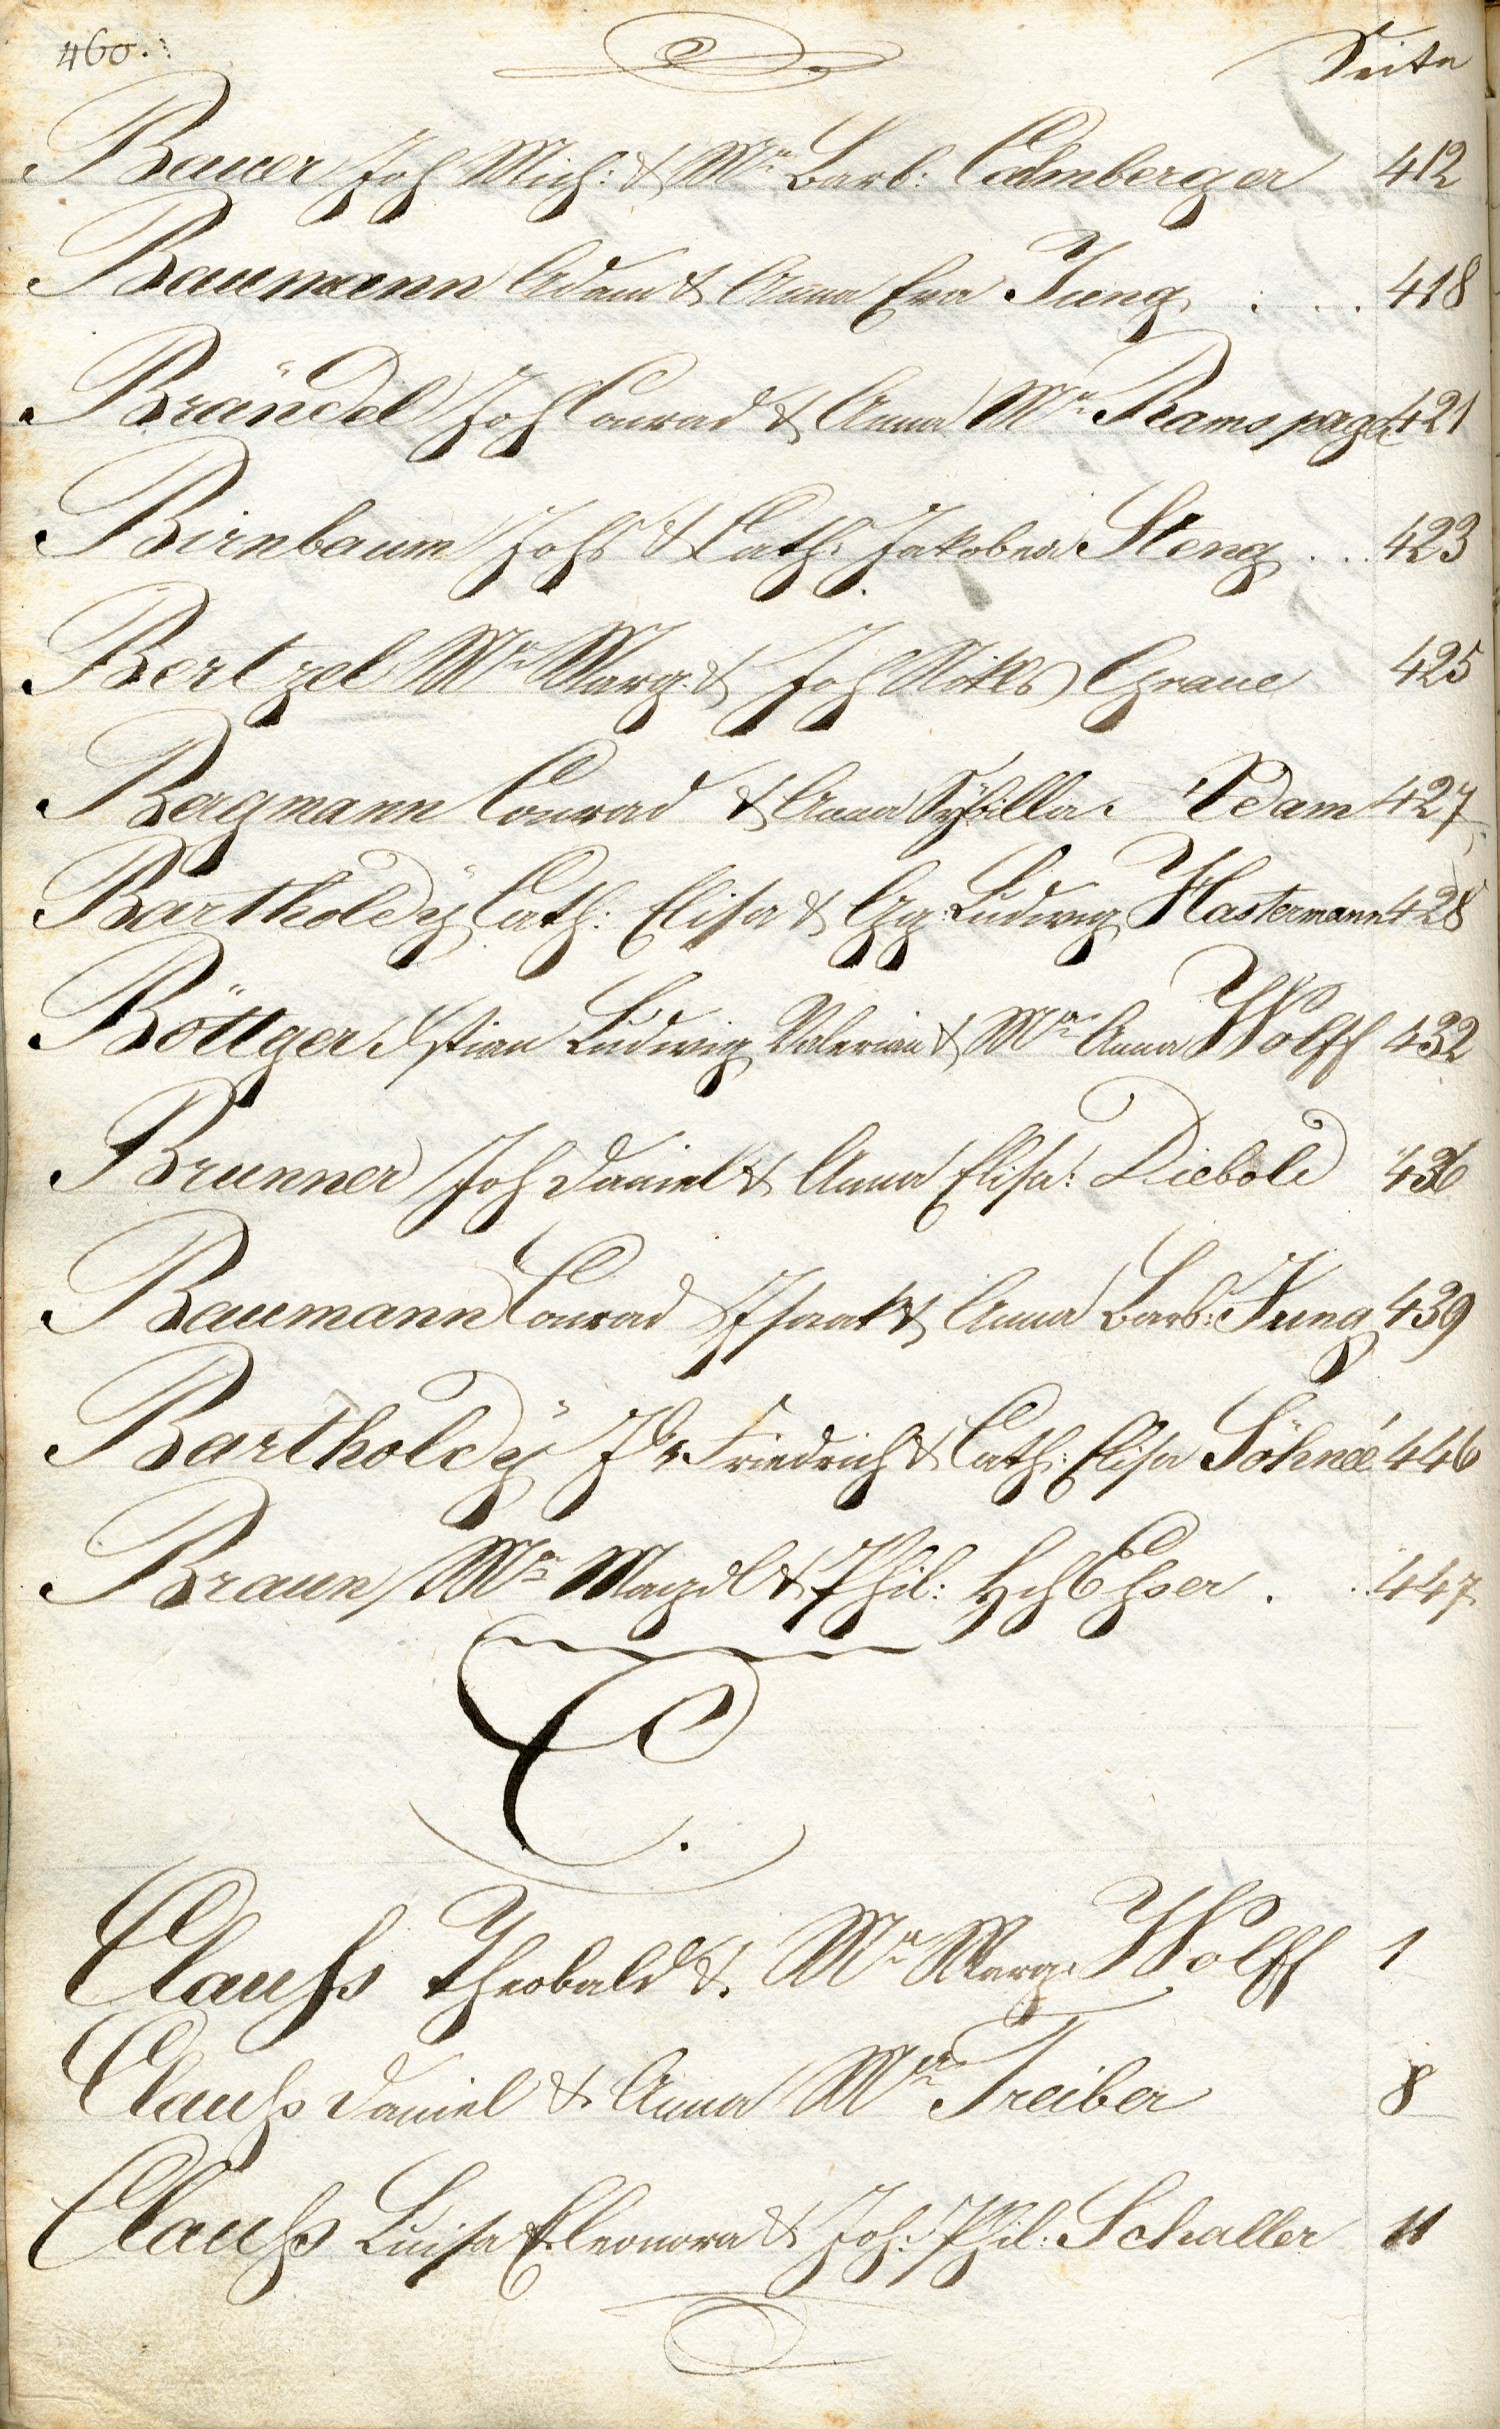 460.
Seite
Bauer Joh Mich: & Mª Barb: Calmberger 412
Baumann Adam & Anna Eva Jung . . . 418
Brändel Joh Conrad & Anna Mª Ramspag 421
Birnbaum Johs & Cath: Jakobea Steng . . . 423
Bertzel Mª Marg: & Joh Nikls Graue 425
Bergmann Conrad & Anna Sybilla Adam 427
Bartholdÿ Cath: Elisa & Gg: Ludwig Hastermann 428
Böttger Xstian Ludwig Valerian & Mª Anna Wolff 432
Brunner Joh Daniel & Anna Elisa: Diebold 436
Baumann Conrad Isaak & Anna Barb: Jung 439
Bartholdÿ Friedrich & Cath: Elisa Söhneé 446
Braun Mª Magdl & Phil: Hch Ehser . . 447
C.
Clauss Theobald & Mª Marg: Wolff 1
Clauss Daniel & Anna Mª Treiber 8
Clauss Luisa Eleonora & Joh: Phil: Schaller 11